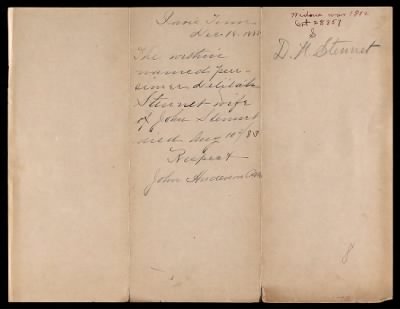 Tenn
Dec 18, 1883
The within
named pen-
sioner Delilah
Stennet wife
of John Stennet
died Aug 10th/83
Respect
John Anderson PM
Widow war 1812
Cert 28857
&
D. H Stennet
8